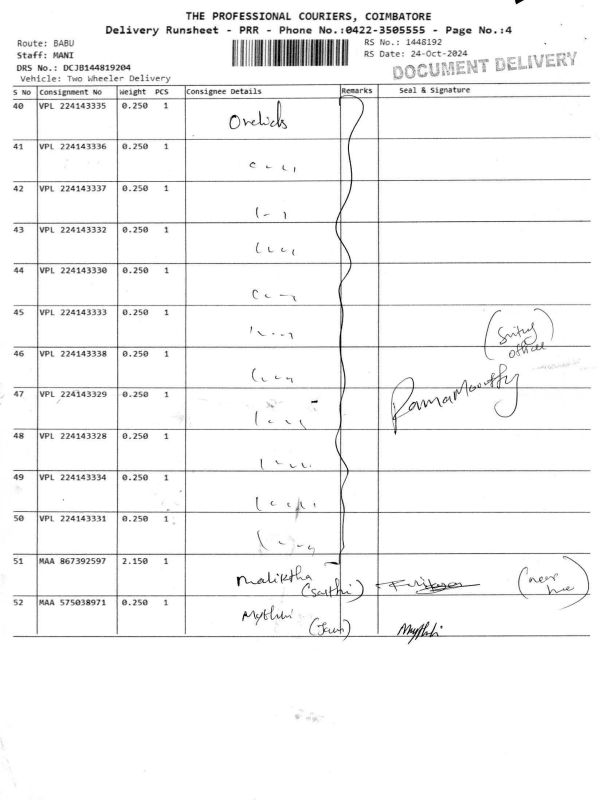 THE PROFESSIONAL COURIERS, COIMBATORE
Delivery Runsheet - PRR - Phone No.:0422-3505555 - Page No.:4
Route: BABU RS No.: 1448192
Staff: MANI RS Date: 24-Oct-2024
DRS No.: DCJB144819204 DOCUMENT DELIVERY
Vehicle: Two Wheeler Delivery
S No Consignment No Weight PCS Consignee Details Remarks Seal & Signature
40 VPL 224143335 0.250 1 Orchids
41 VPL 224143336 0.250 1
42 VPL 224143337 0.250 1
43 VPL 224143332 0.250 1
44 VPL 224143330 0.250 1
45 VPL 224143333 0.250 1
office
46 VPL 224143338 0.250 1
RamaMoorthy
47 VPL 224143329 0.250 1
48 VPL 224143328 0.250 1
49 VPL 224143334 0.250 1
50 VPL 224143331 0.250 1
51 MAA 867392597 2.150 1 Maliktha (near
52 MAA 575038971 0.250 1 Mythili
Mythili